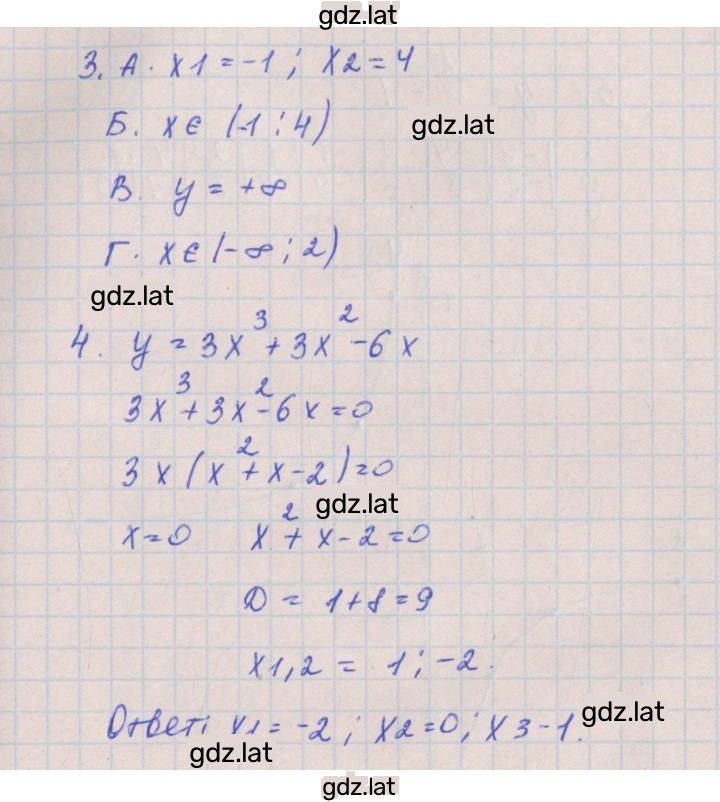 gdz.lat
3. А. x1 = -1 ; x2 = 4
Б. x ∈ (-1 ; 4)
gdz.lat
В. y = +∞
Г. x ∈ (-∞ ; 2)
gdz.lat
4. y = 3x³ + 3x² - 6x
3x³ + 3x² - 6x = 0
3x (x² + x - 2) = 0
gdz.lat
x = 0 x² + x - 2 = 0
D = 1 + 8 = 9
x1,2 = 1 ; -2.
Ответ: x1 = -2 ; x2 = 0 ; x3 - 1.
gdz.lat
gdz.lat
gdz.lat